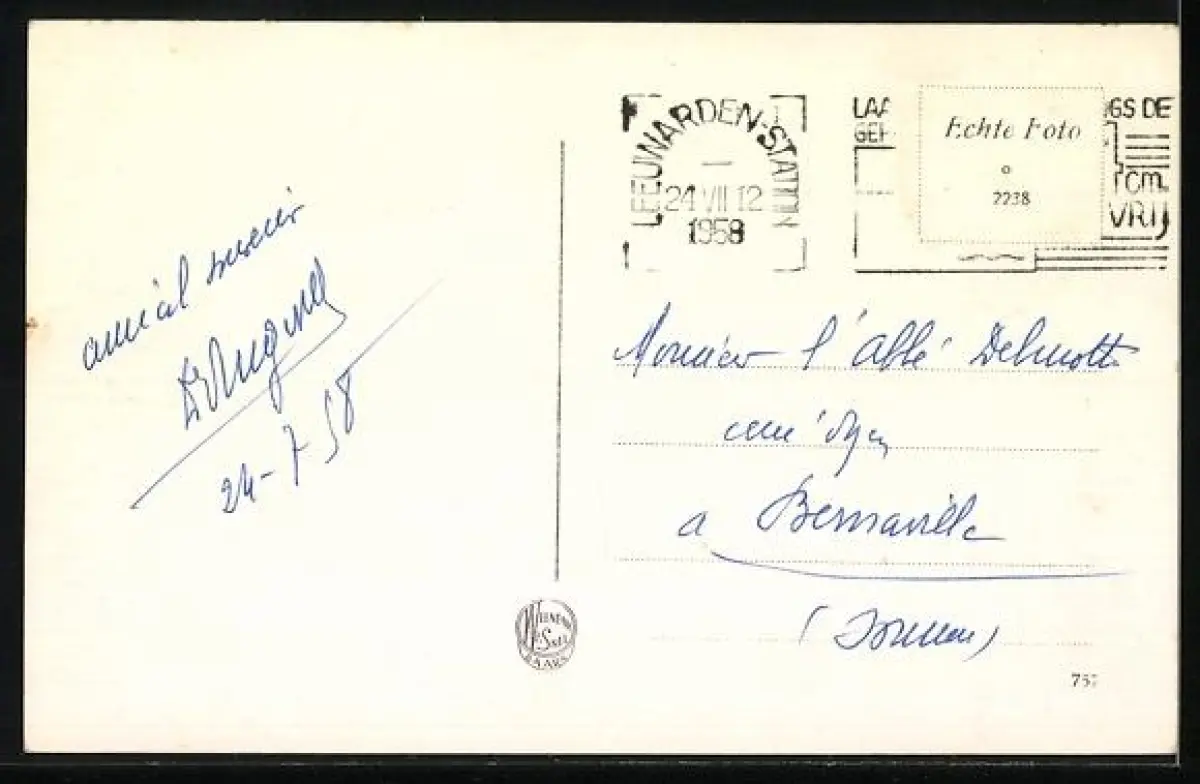 amical souvenir
24-7-58
LEEUWARDEN-STATION
24 VII 12
1958
LAA
GEF
GS DE
1 cm.
VRIJ
Echte Foto
2238
Monsieur l'abbé Delmotte
curé doyen
a Bernaville
(Somme)
WEENENK & SNEL
BAARN
737